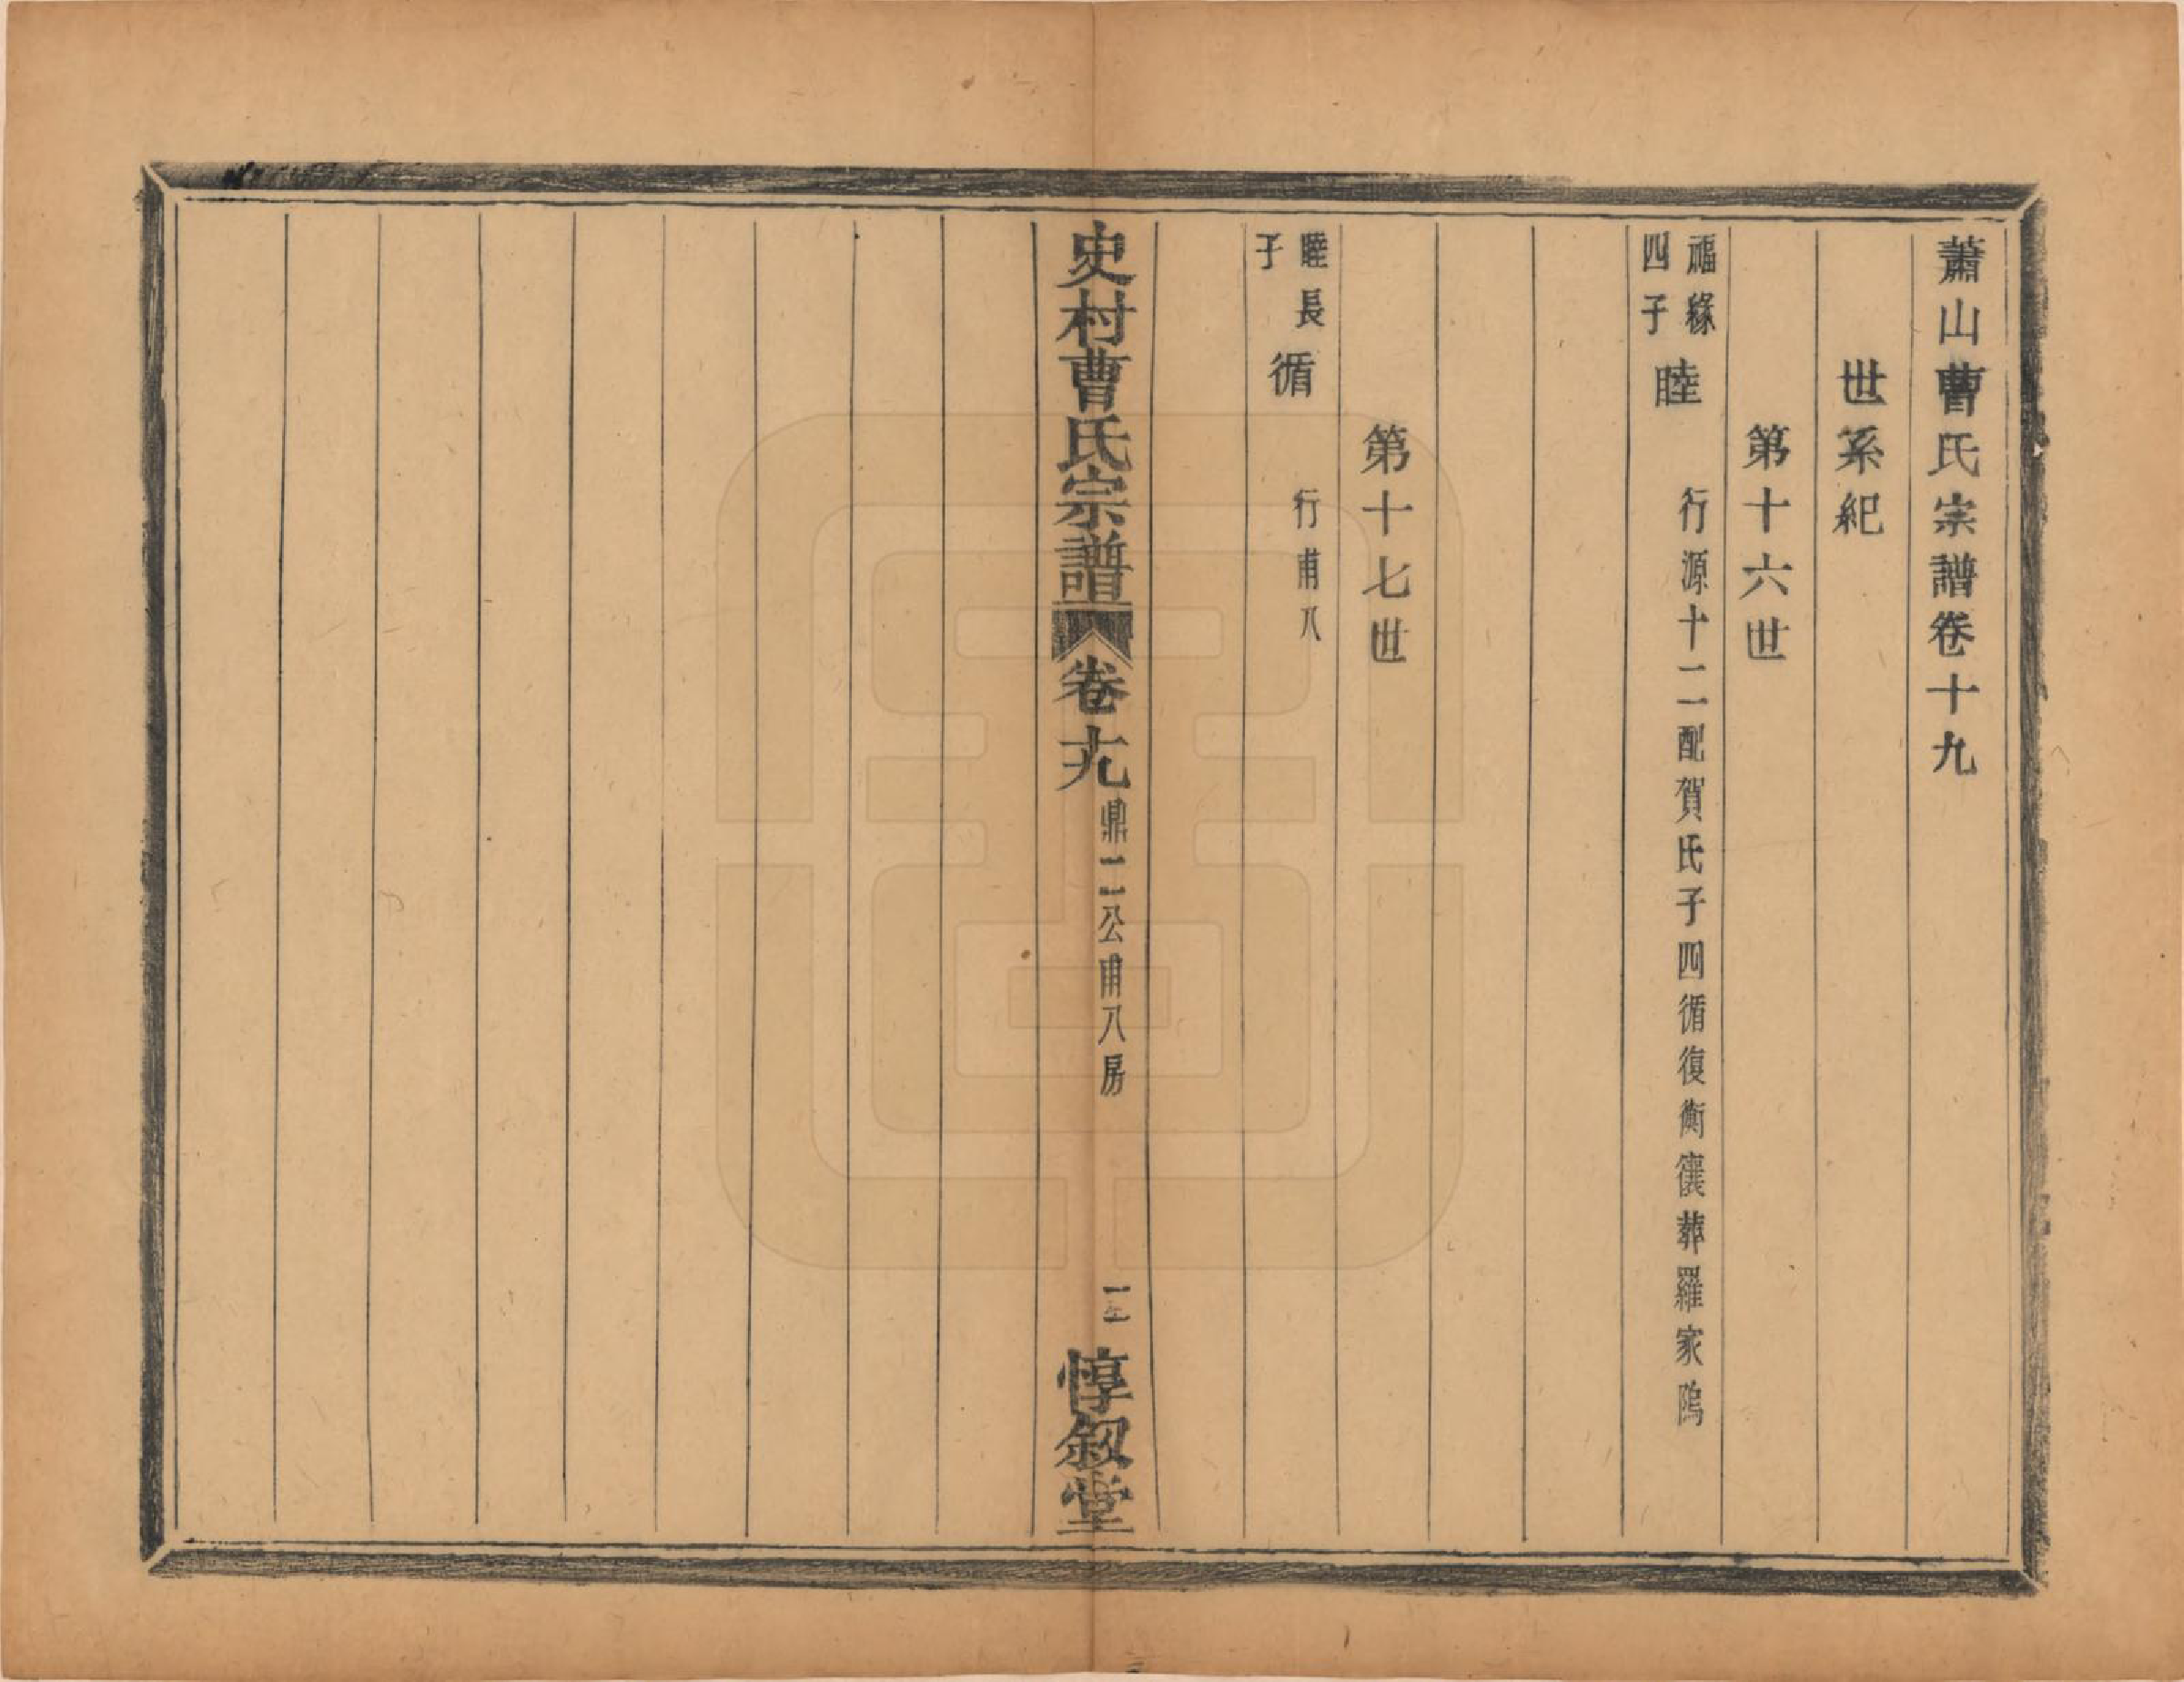 蕭山曹氏宗譜卷十九
世系紀
第十六世
福緣
四子
睦
行源十二配賀氏子四循復衡儴葬羅家隖
第十七世
睦長
子
循
行甫八
史村曹氏宗譜
卷十九
鼎二二公甫八房
惇敘堂